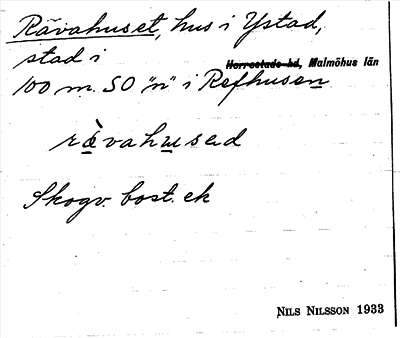 Rävahuset, hus i Ystad,
stad i Herrestads hd, Malmöhus län
100 m. SO "n" i Refhusen
rävahused
Skogv. bost. ek
NILS NILSSON 1933